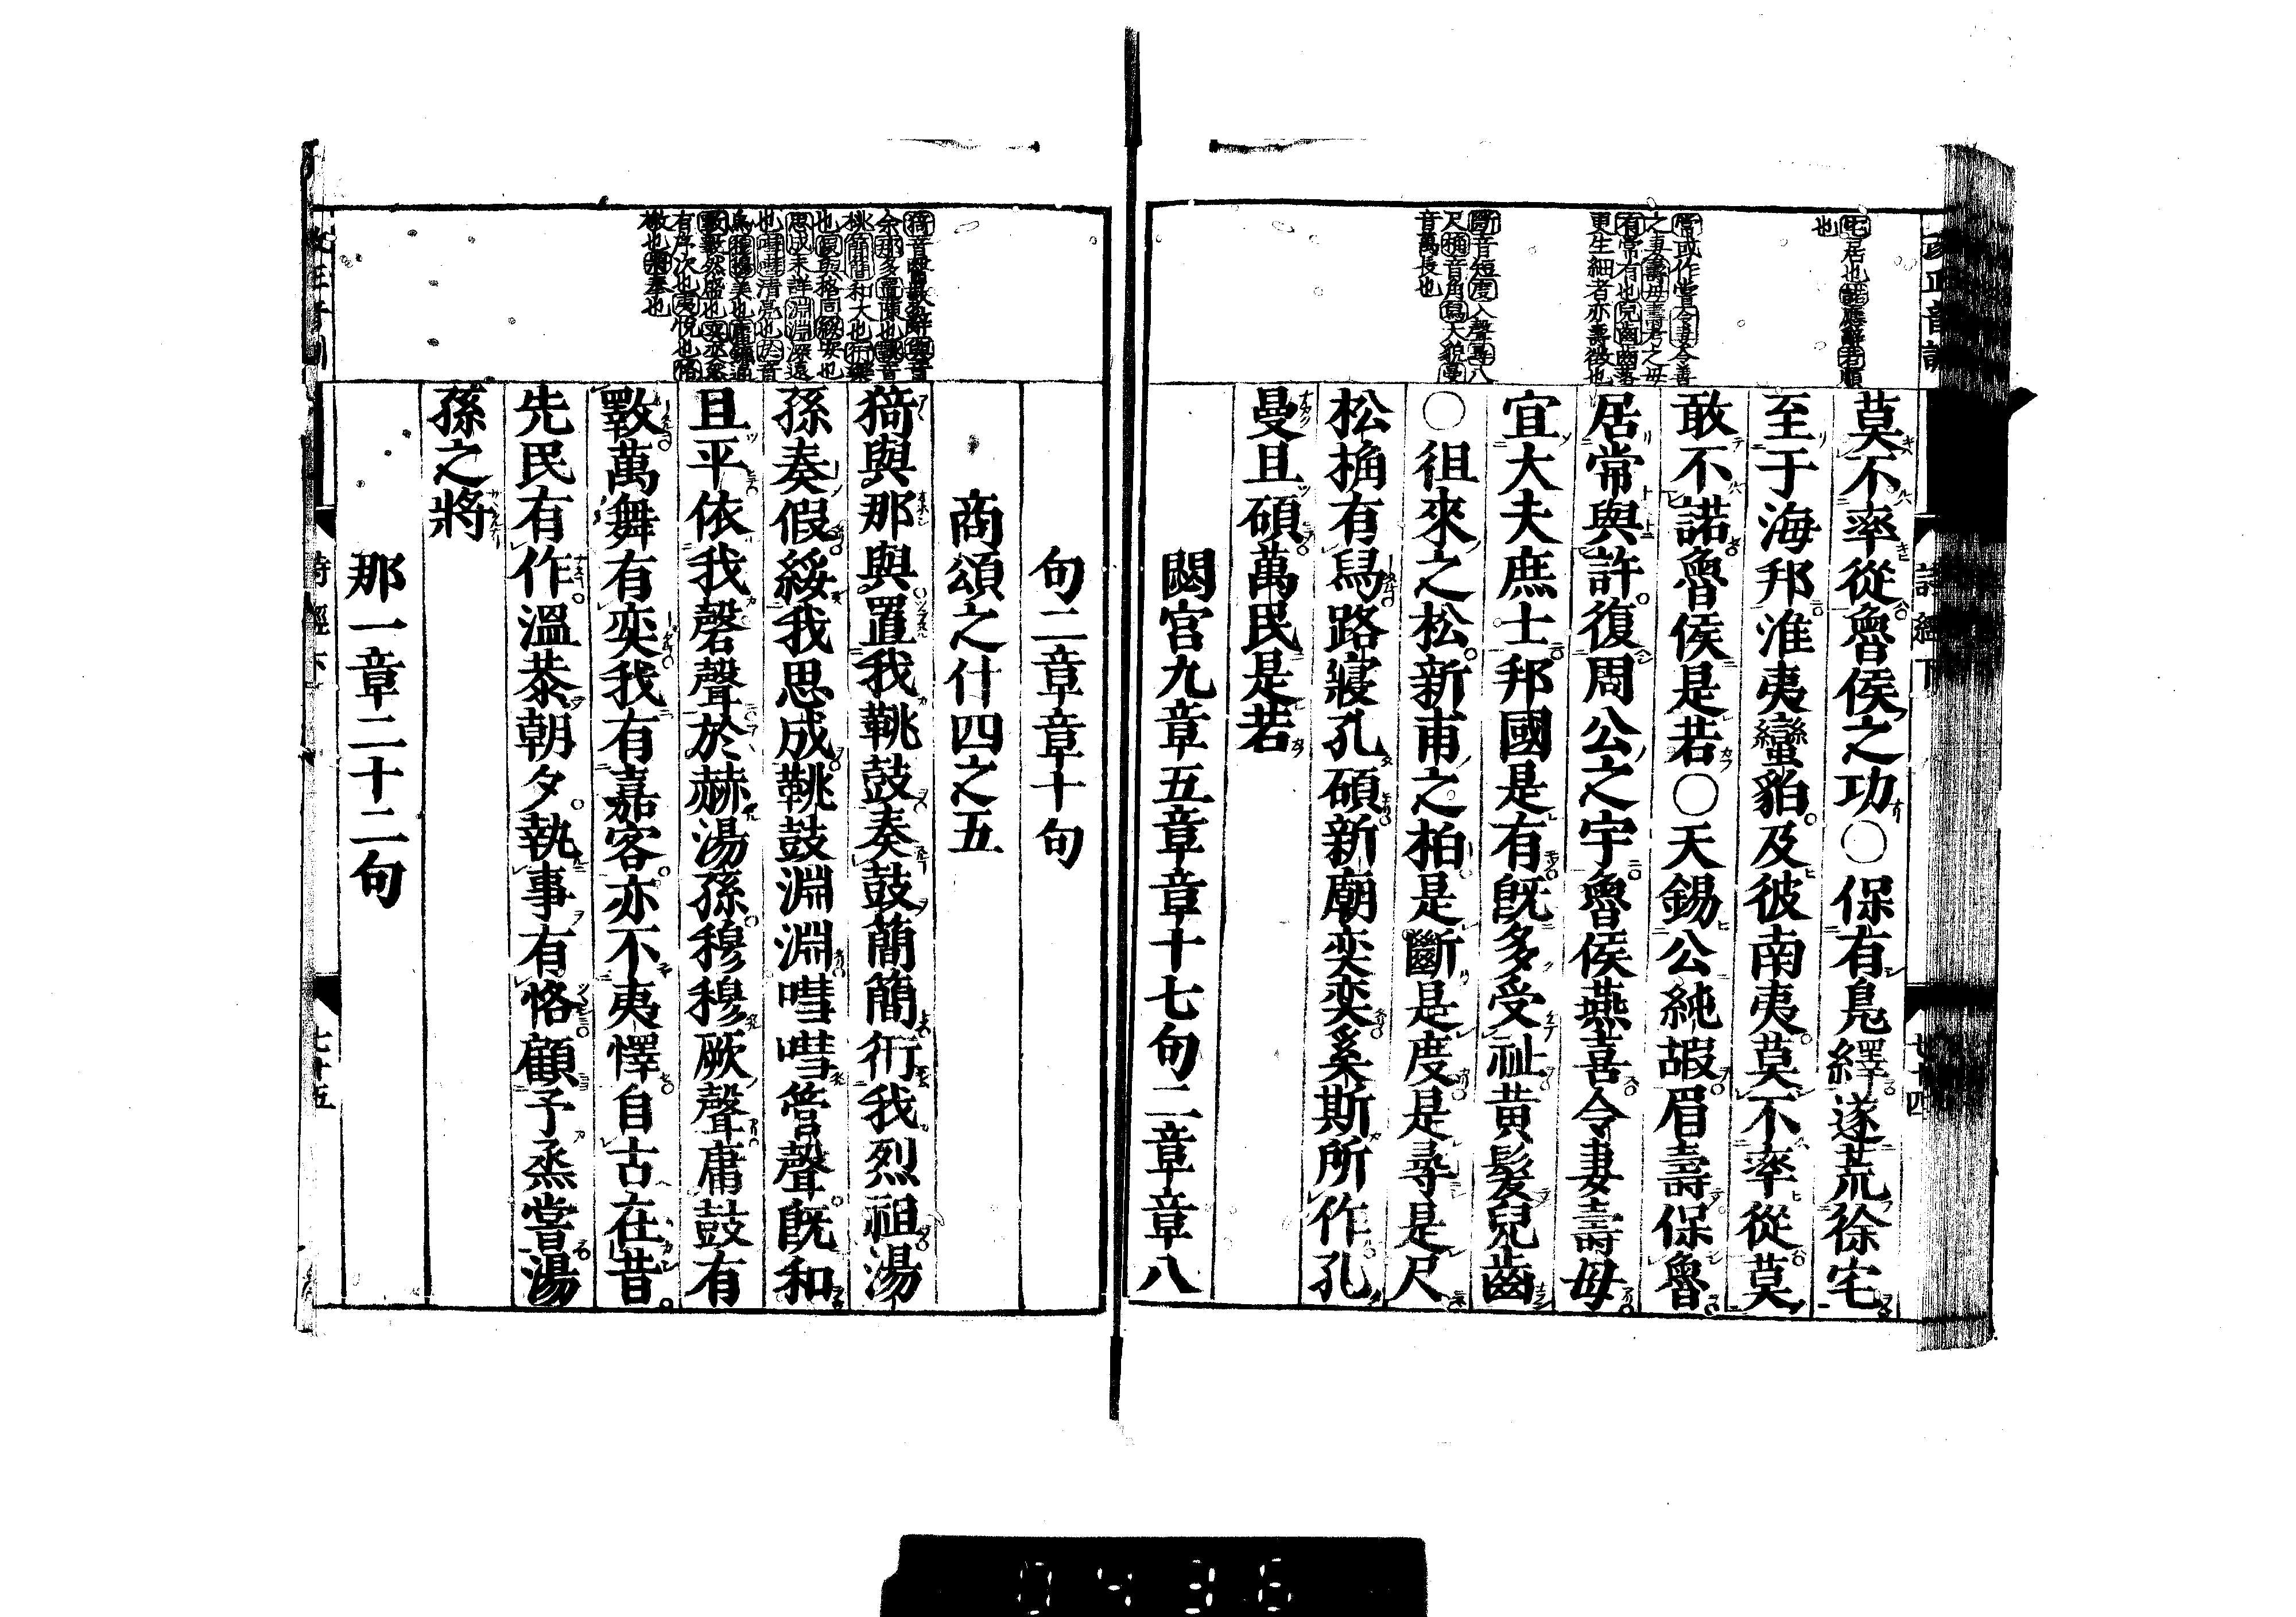 莫不率從魯侯之功○保有鳧繹遂荒徐宅
至于海邦淮夷蠻貊及彼南夷莫不率從莫
敢不諾魯侯是若○天錫公純嘏眉壽保魯
居常與許復周公之宇魯侯燕喜令妻壽母
宜大夫庶士邦國是有既多受祉黃髮兒齒
○徂來之松新甫之柏是斷是度是尋是尺
松桷有舄路寢孔碩新廟奕奕奚斯所作孔
曼且碩萬民是若
閟宮九章五章章十七句二章章八
宅居也諾應辭若順
也
常或作嘗令妻令善
之妻壽母壽考之母
有常有也兒齒齒落
更生細者亦壽徵也
斷音短度入聲尋八
尺桷音角舄大貌曼
音萬長也
句二章章十句
商頌之什四之五
猗與那與置我鞉鼓奏鼓簡簡衎我烈祖湯
孫奏假綏我思成鞉鼓淵淵嘒嘒管聲既和
且平依我磬聲於赫湯孫穆穆厥聲庸鼓有
斁萬舞有奕我有嘉客亦不夷懌自古在昔
先民有作溫恭朝夕執事有恪顧予烝嘗湯
孫之將
那一章二十二句
詩經下
七十五
0436